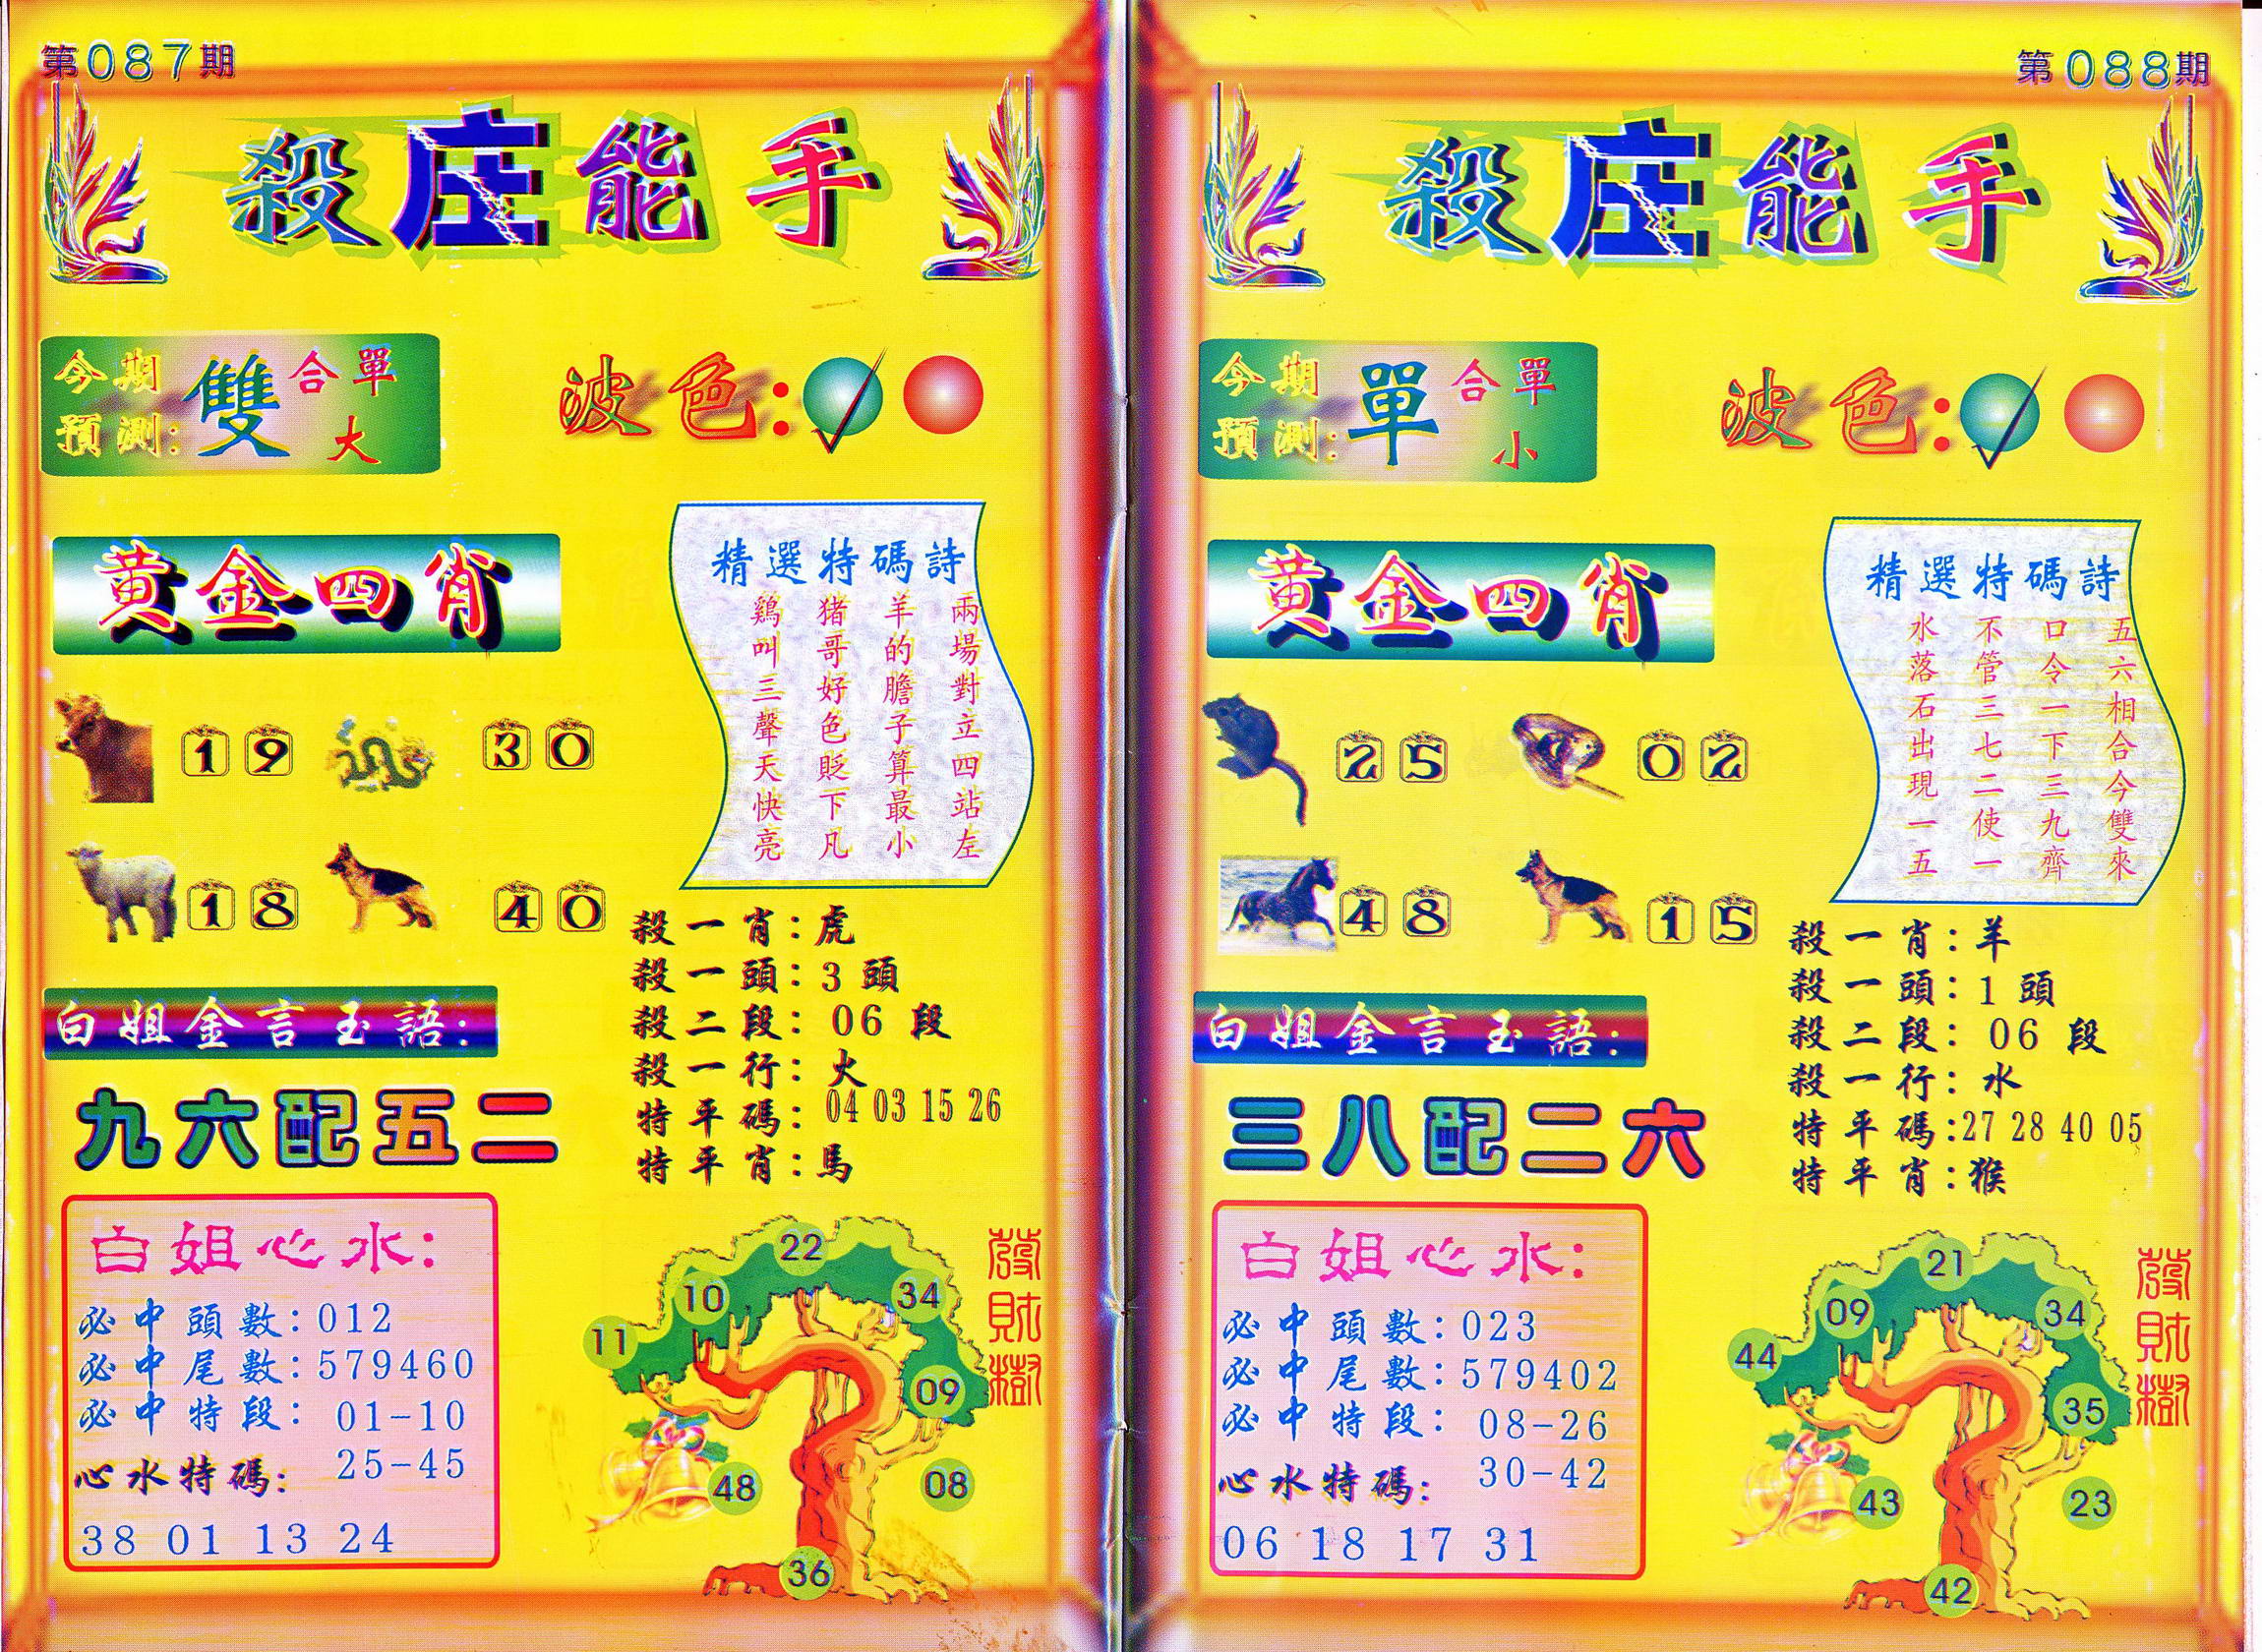 第087期
殺庄能手
今期預測: 雙 合單 大
波色:
黄金四肖
19 30
18 40
精選特碼詩
兩場對立四站左
羊的膽子算最小
猪哥好色貶下凡
鷄叫三聲天快亮
殺一肖:虎
殺一頭:3頭
殺二段:06段
殺一行:火
特平碼:04 03 15 26
特平肖:馬
白姐金言玉語:
九六配五二
白姐心水:
必中頭數:012
必中尾數:579460
必中特段:01-10
25-45
心水特碼:
38 01 13 24
發財樹
22
10
34
11
09
48
08
36
第088期
殺庄能手
今期預測: 單 合單 小
波色:
黄金四肖
25 02
48 15
精選特碼詩
五六相合今雙來
口令一下三九齊
不管三七二使一
水落石出現一五
殺一肖:羊
殺一頭:1頭
殺二段:06段
殺一行:水
特平碼:27 28 40 05
特平肖:猴
白姐金言玉語:
三八配二六
白姐心水:
必中頭數:023
必中尾數:579402
必中特段:08-26
30-42
心水特碼:
06 18 17 31
發財樹
21
09
34
44
35
43
23
42